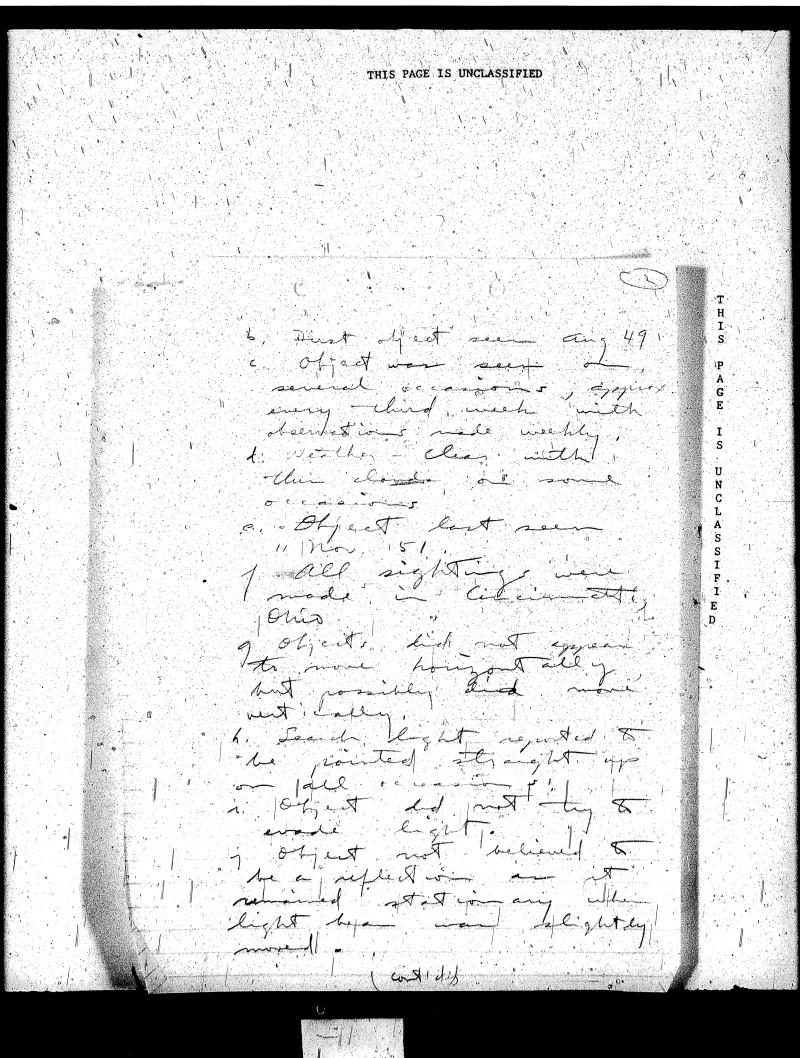 THIS PAGE IS UNCLASSIFIED
2
b. First object seen Aug 49
c. Object was seen on
several occasions, approx
every third week with
observations made weekly.
d. Weather - Clear with
thin clouds on some
occasions
e. Object last seen
" Nov. 51.
f All sightings were
made in Cincinnatti,
Ohio
g Objects did not appear
to move horizontally
but possibly did move
vertically.
h. Search light reported to
be pointed straight up
on all occasions.
i. Object did not try to
evade light.
j Object not believed to
be a reflection as it
remained stationary when
light beam was slightly
moved.
(cont'd)
THIS PAGE IS UNCLASSIFIED